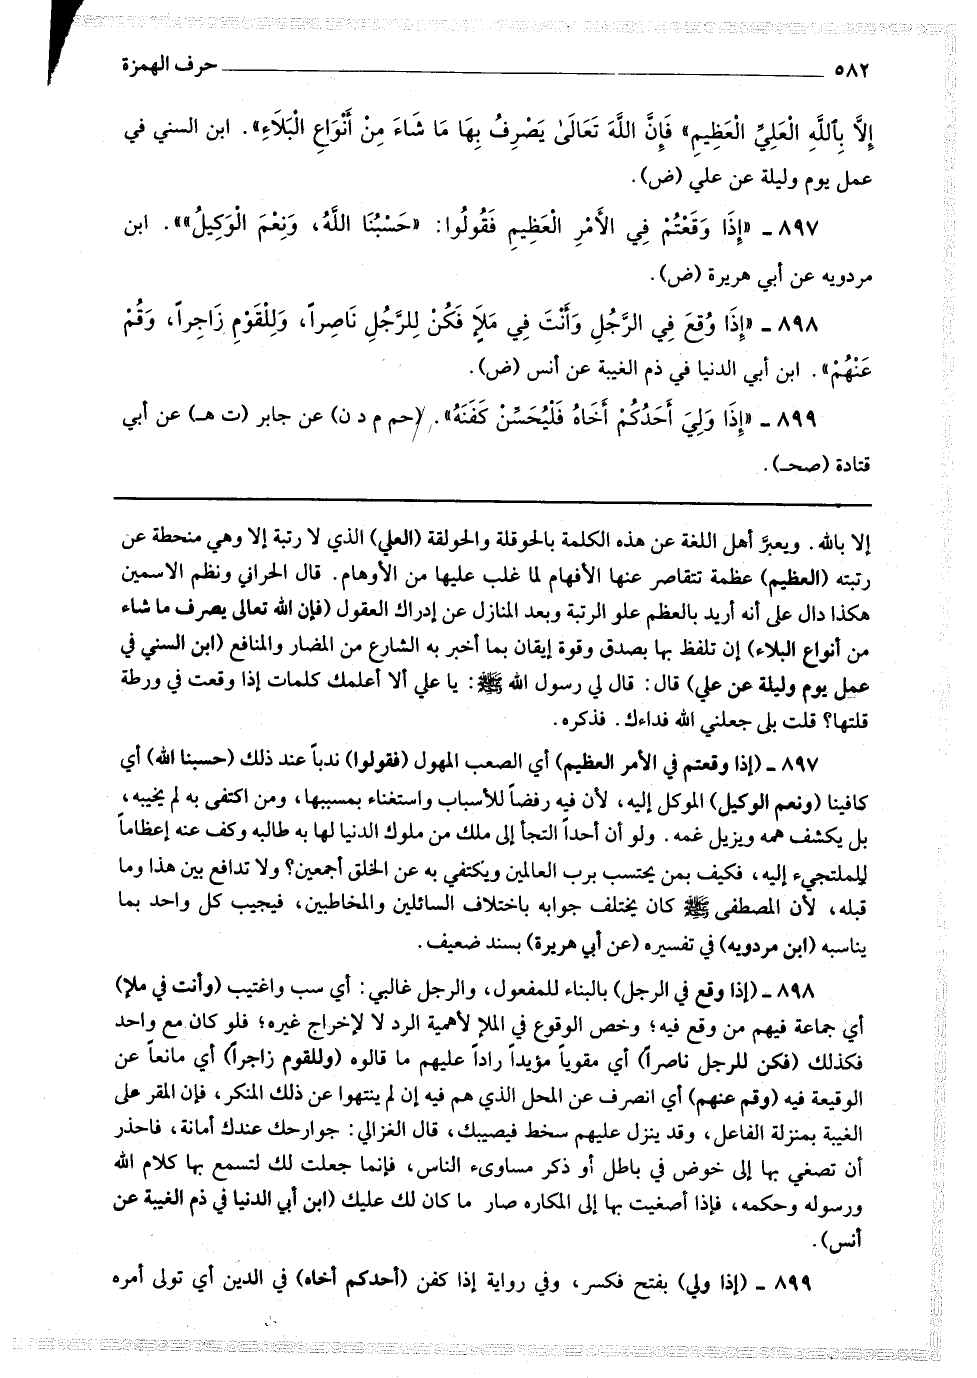 ٥٨٢ ـــــــــــــــــ حرف الهمزة
إِلاَّ بِٱللَّهِ الْعَلِيِّ الْعَظِيمِ» فَإِنَّ اللَّهَ تَعَالَىٰ يَصْرِفُ بِهَا مَا شَاءَ مِنْ أَنْوَاعِ الْبَلَاءِ». ابن السني في
عمل يوم وليلة عن علي (ض).
٨٩٧ ـ «إِذَا وَقَعْتُمْ فِي الأَمْرِ الْعَظِيمِ فَقُولُوا: «حَسْبُنَا اللَّهُ، وَنِعْمَ الْوَكِيلُ»». ابن
مردويه عن أبي هريرة (ض).
٨٩٨ ـ «إِذَا وُقِعَ فِي الرَّجُلِ وَأَنْتَ فِي مَلَإٍ فَكُنْ لِلرَّجُلِ نَاصِراً، وَلِلْقَوْمِ زَاجِراً، وَقُمْ
عَنْهُمْ». ابن أبي الدنيا في ذم الغيبة عن أنس (ض).
٨٩٩ ـ «إِذَا وَلِيَ أَحَدُكُمْ أَخَاهُ فَلْيُحَسِّنْ كَفَنَهُ». (حم م د ن) عن جابر (ت هـ) عن أبي
قتادة (صحـ).
إلا بالله. ويعبرَّ أهل اللغة عن هذه الكلمة بالحوقلة والحولقة (العلي) الذي لا رتبة إلا وهي منحطة عن
رتبته (العظيم) عظمة تتقاصر عنها الأفهام لما غلب عليها من الأوهام. قال الحراني ونظم الاسمين
هكذا دال على أنه أريد بالعظم علو الرتبة وبعد المنازل عن إدراك العقول (فإن الله تعالى يصرف ما شاء
من أنواع البلاء) إن تلفظ بها بصدق وقوة إيقان بما أخبر به الشارع من المضار والمنافع (ابن السني في
عمل يوم وليلة عن علي) قال: قال لي رسول الله ﷺ: يا علي ألا أعلمك كلمات إذا وقعت في ورطة
قلتها؟ قلت بلى جعلني الله فداءك. فذكره.
٨٩٧ ـ (إذا وقعتم في الأمر العظيم) أي الصعب المهول (فقولوا) ندباً عند ذلك (حسبنا الله) أي
كافينا (ونعم الوكيل) الموكل إليه، لأن فيه رفضاً للأسباب واستغناء بمسببها، ومن اكتفى به لم يخيبه،
بل يكشف همه ويزيل غمه. ولو أن أحداً التجأ إلى ملك من ملوك الدنيا لها به طالبه وكف عنه إعظاماً
للملتجيء إليه، فكيف بمن يحتسب برب العالمين ويكتفي به عن الخلق أجمعين؟ ولا تدافع بين هذا وما
قبله، لأن المصطفى ﷺ كان يختلف جوابه باختلاف السائلين والمخاطبين، فيجيب كل واحد بما
يناسبه (ابن مردويه) في تفسيره (عن أبي هريرة) بسند ضعيف.
٨٩٨ ـ (إذا وقع في الرجل) بالبناء للمفعول، والرجل غالبي: أي سب واغتيب (وأنت في ملإ)
أي جماعة فيهم من وقع فيه؛ وخص الوقوع في الملإ لأهمية الرد لا لإخراج غيره؛ فلو كان مع واحد
فكذلك (فكن للرجل ناصراً) أي مقوياً مؤيداً راداً عليهم ما قالوه (وللقوم زاجراً) أي مانعاً عن
الوقيعة فيه (وقم عنهم) أي انصرف عن المحل الذي هم فيه إن لم ينتهوا عن ذلك المنكر، فإن المقر على
الغيبة بمنزلة الفاعل، وقد ينزل عليهم سخط فيصيبك، قال الغزالي: جوارحك عندك أمانة، فاحذر
أن تصغي بها إلى خوض في باطل أو ذكر مساوىء الناس، فإنما جعلت لك لتسمع بها كلام الله
ورسوله وحكمه، فإذا أصغيت بها إلى المكاره صار ما كان لك عليك (ابن أبي الدنيا في ذم الغيبة عن
أنس).
٨٩٩ ـ (إذا ولي) بفتح فكسر، وفي رواية إذا كفن (أحدكم أخاه) في الدين أي تولى أمره